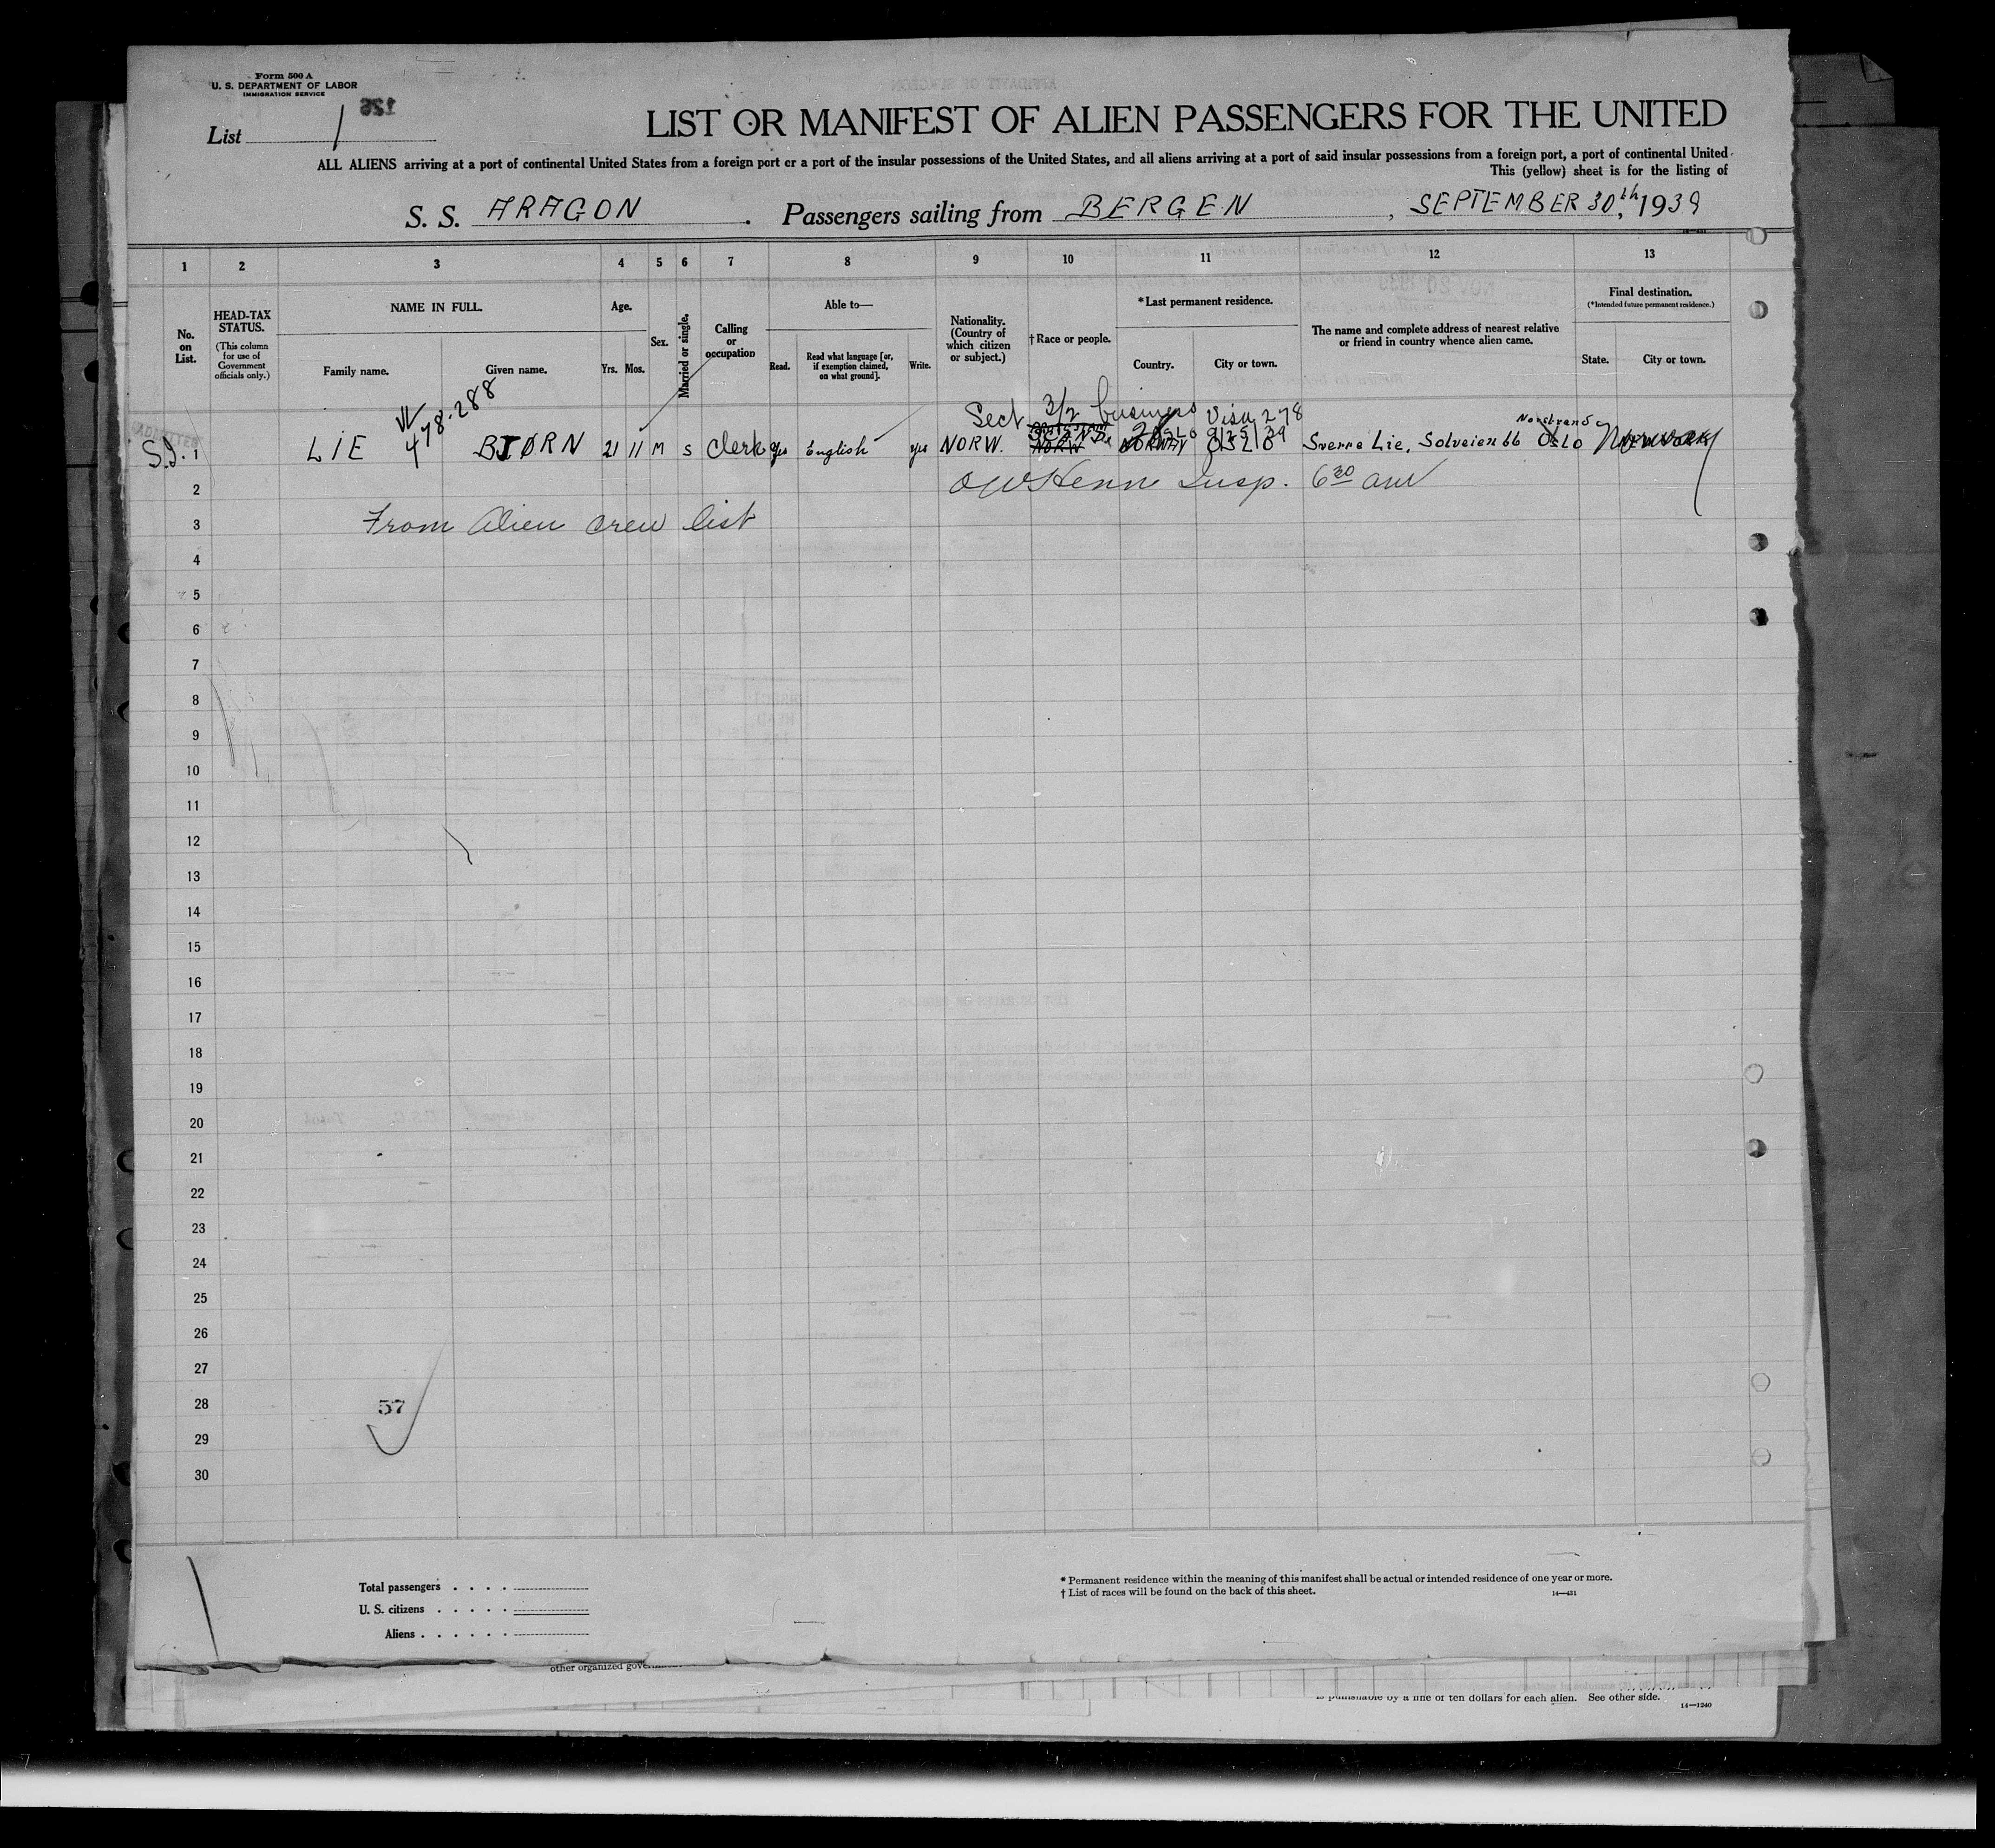 Form 500 A
U. S. DEPARTMENT OF LABOR
IMMIGRATION SERVICE
126
List 1
LIST OR MANIFEST OF ALIEN PASSENGERS FOR THE UNITED
ALL ALIENS arriving at a port of continental United States from a foreign port or a port of the insular possessions of the United States, and all aliens arriving at a port of said insular possessions from a foreign port, a port of continental United
This (yellow) sheet is for the listing of
S. S. ARAGON . Passengers sailing from BERGEN , SEPTEMBER 30th, 1939
1 2 3 4 5 6 7 8 9 10 11 12 13
No. on List.
HEAD-TAX STATUS.
(This column for use of Government officials only.)
NAME IN FULL.
Family name. Given name.
Age.
Yrs. Mos.
Sex.
Married or single.
Calling or occupation
Able to—
Read. Read what language [or, if exemption claimed, on what ground]. Write.
Nationality. (Country of which citizen or subject.)
†Race or people.
*Last permanent residence.
Country. City or town.
The name and complete address of nearest relative or friend in country whence alien came.
Final destination.
(*Intended future permanent residence.)
State. City or town.
478-288
Sect 3/2 business Visa 278
9/25/39
Nordstrand
ADMITTED
S.I. 1 LIE BJØRN 21 11 M S Clerk yes English yes NORW. NORW NORWAY OSLO Sverre Lie, Solveien 66 OSLO NEW YORK
2 Insp. 6 30 am
3 From Alien crew list
4
5
6
7
8
9
10
11
12
13
14
15
16
17
18
19
20
21
22
23
24
25
26
27
28 57
29
30
Total passengers . . . .
U. S. citizens . . . . .
Aliens . . . . . .
* Permanent residence within the meaning of this manifest shall be actual or intended residence of one year or more.
† List of races will be found on the back of this sheet.
14—431
other organized
by a fine of ten dollars for each alien. See other side.
14—1240